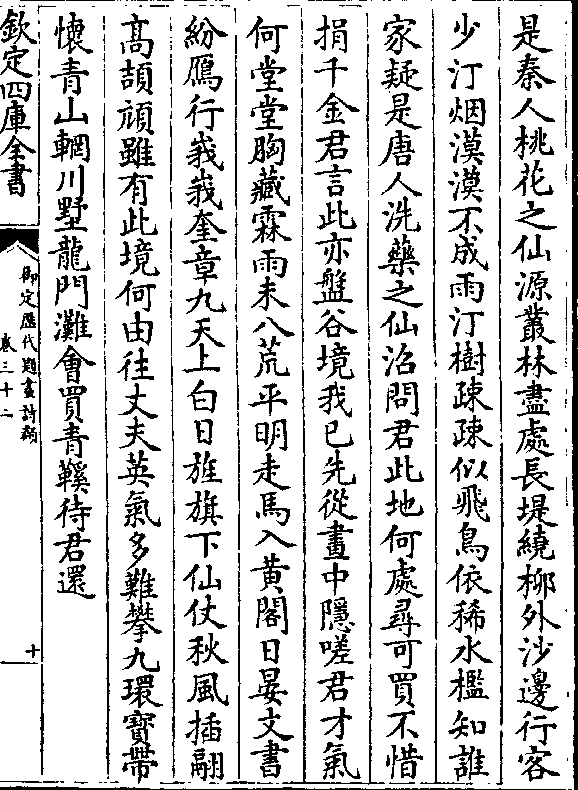 是秦人桃花之仙源叢林盡處長堤繞柳外沙邊行客
少汀烟漠漠不成雨汀樹疎疎似飛鳥依稀水檻知誰
家疑是唐人洗藥之仙沼問君此地何處尋可買不惜
捐千金君言此亦盤谷境我已先從畫中隱嗟君才氣
何堂堂胸藏霖雨未八荒平明走馬入黃閣日晏文書
紛鴈行峩峩奎章九天上白日旌旗下仙仗秋風插翮
高頡頏雖有此境何由往丈夫英氣多難攀九環寶帶
懷青山輞川墅龍門灘會買青鞵待君還
欽定四庫全書
御定歷代題畫詩類
卷三十二
十